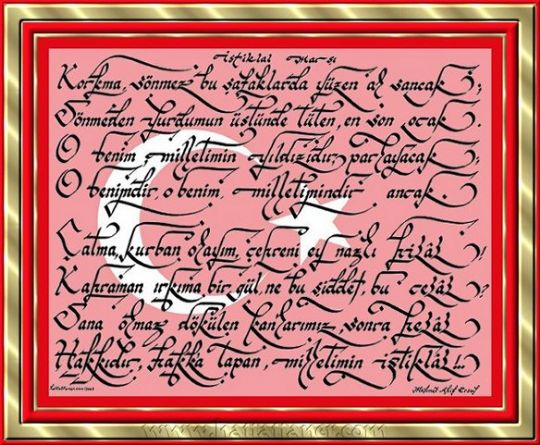 istiklal marşı
Korkma, sönmez bu şafaklarda yüzen al sancak;
Sönmeden yurdumun üstünde tüten, en son ocak
O benim, milletimin yıldızıdır parlayacak;
O benimdir, o benim, milletimindir ancak.
Çatma, kurban olayım, çehreni ey nazlı hilâl!
Kahraman ırkıma bir gül, ne bu şiddet, bu celâl?
Sana olmaz dökülen kanlarımız sonra helâl
Hakkıdır, Hakk'a tapan, milletimin istiklâl...
Mehmet Akif Ersoy
www.hattattaner.com